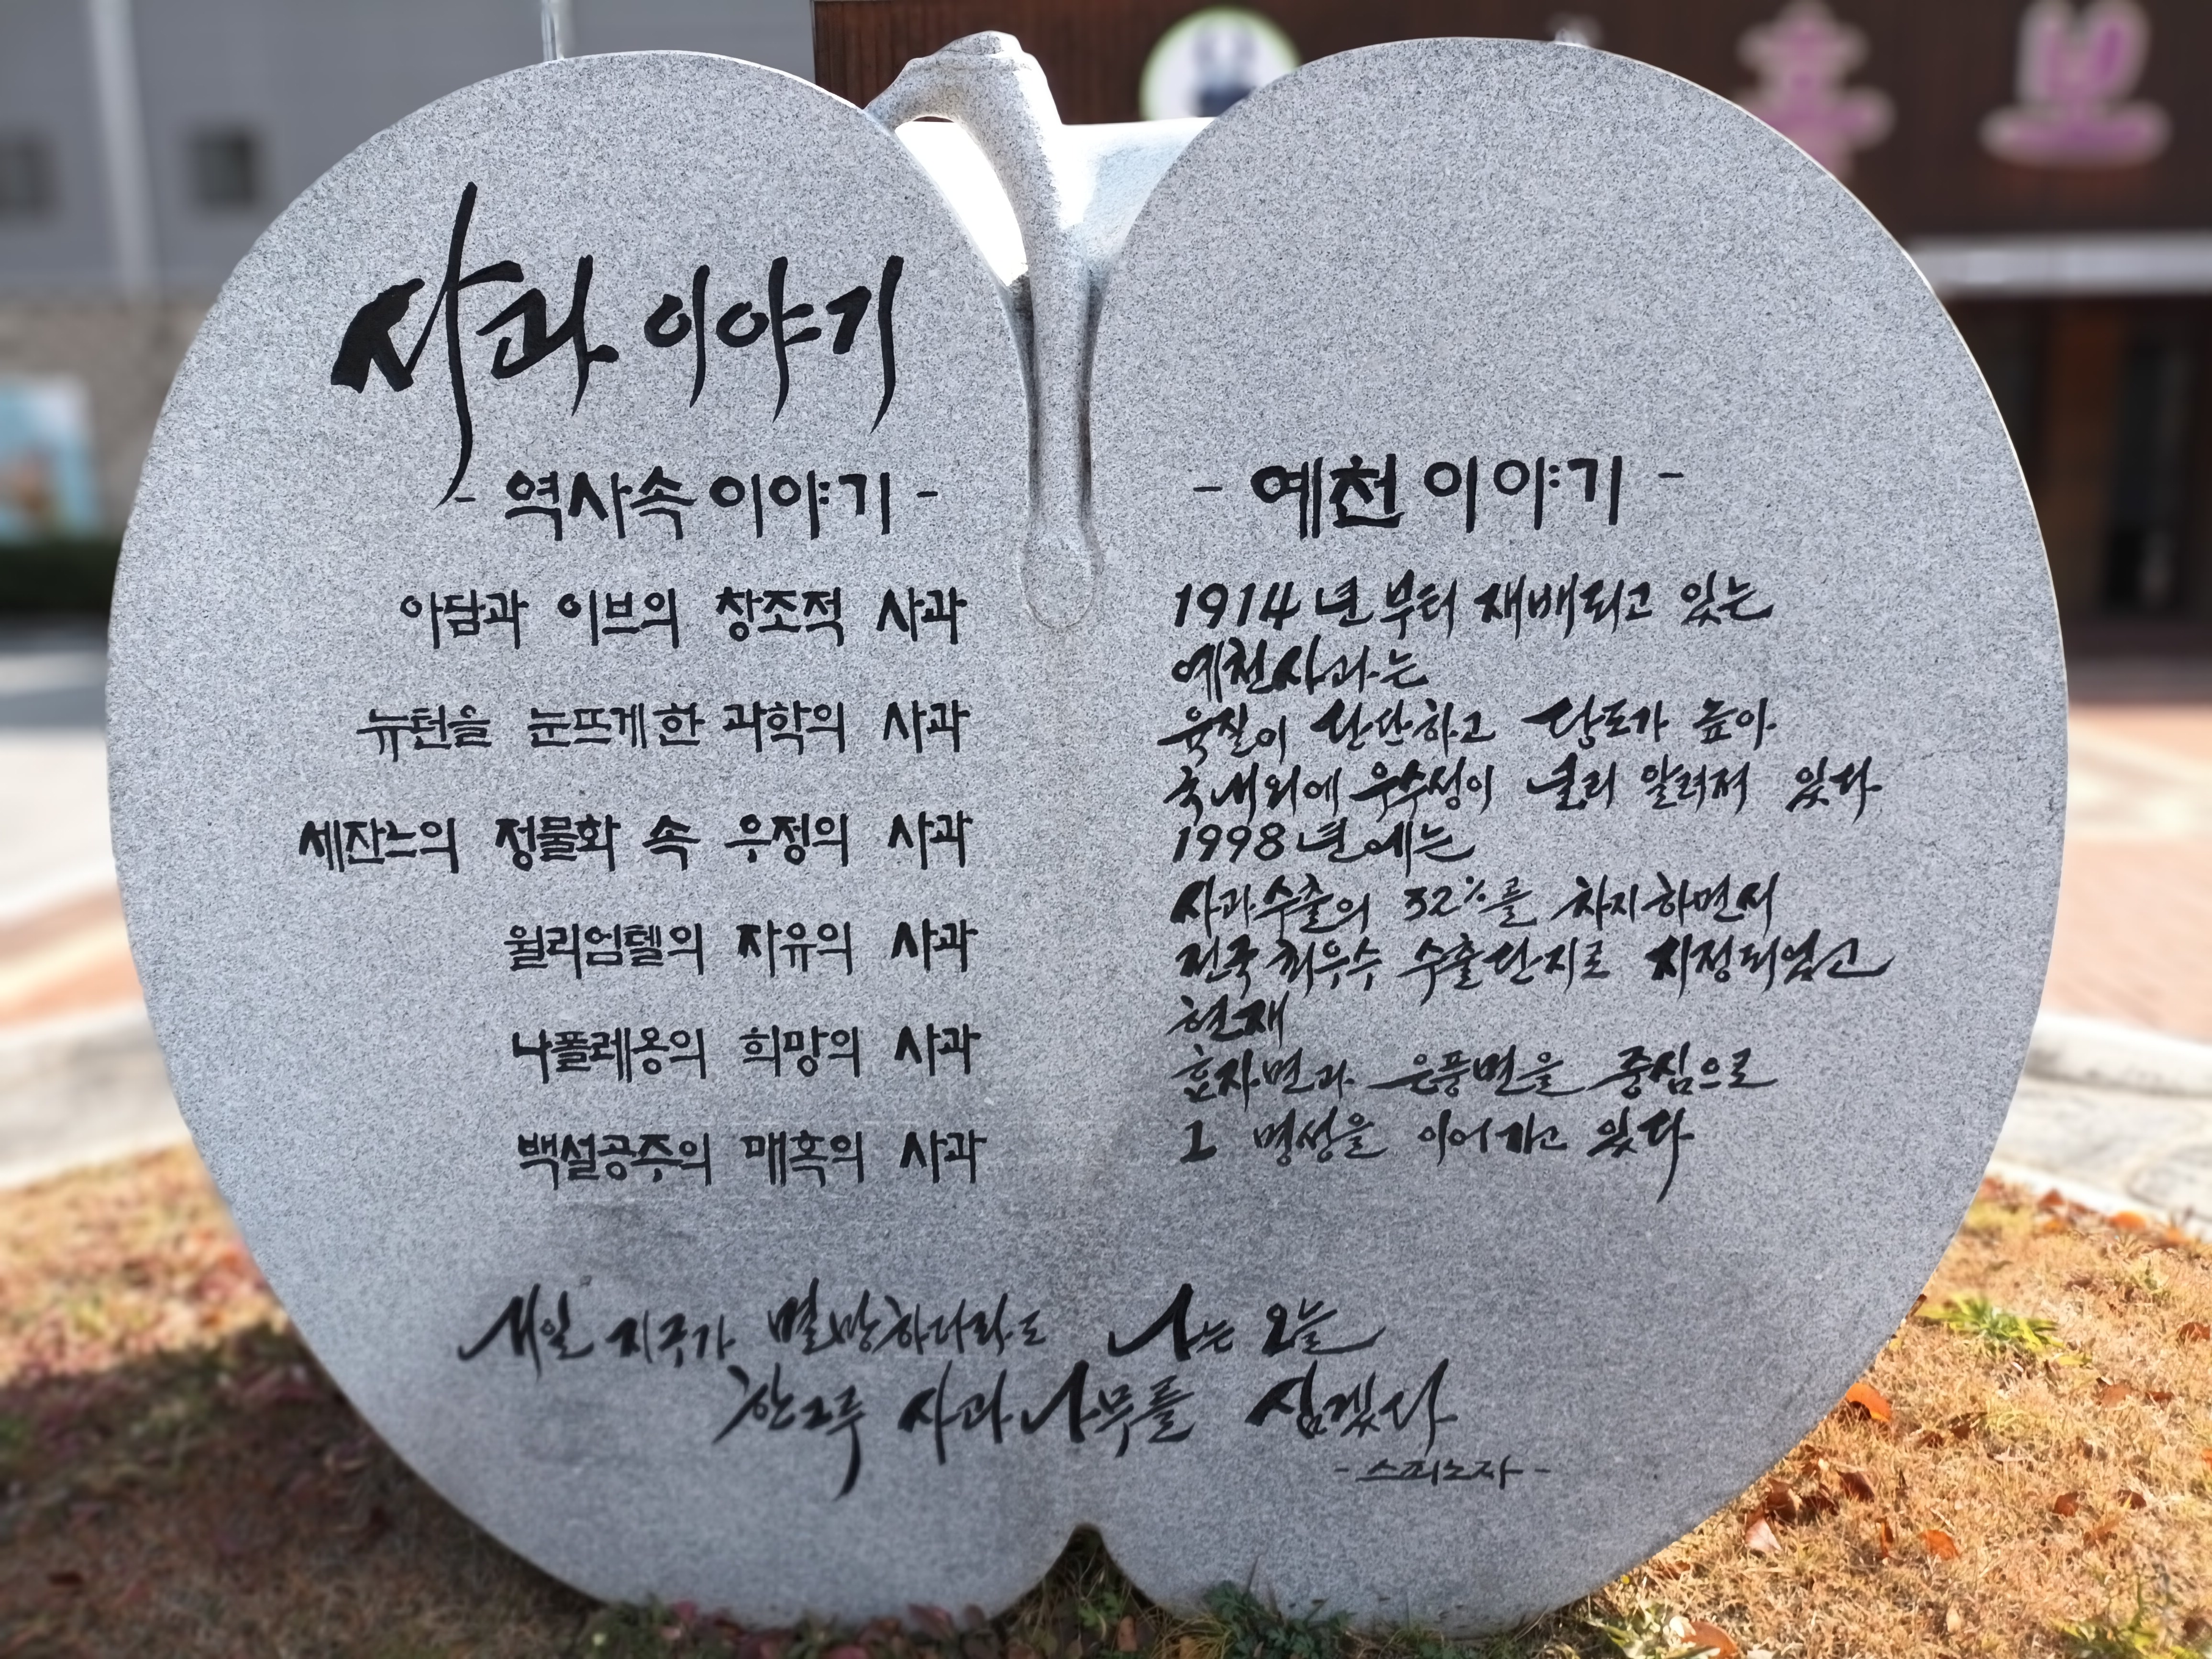 사과 이야기
- 역사속 이야기 -
아담과 이브의 창조적 사과
뉴턴을 눈뜨게한 과학의 사과
세잔느의 정물화 속 우정의 사과
윌리엄텔의 자유의 사과
나폴레옹의 희망의 사과
백설공주의 매혹의 사과
- 예천 이야기 -
1914년부터 재배되고 있는
예천사과는
육질이 단단하고 당도가 높아
국내외에 우수성이 널리 알려져 있다
1998년에는
사과수출의 32%를 차지하면서
전국 최우수 수출단지로 지정되었고
현재
효자면과 은풍면을 중심으로
그 명성을 이어가고 있다
내일 지구가 멸망하더라도 나는 오늘
한그루 사과나무를 심겠다
- 스피노자 -